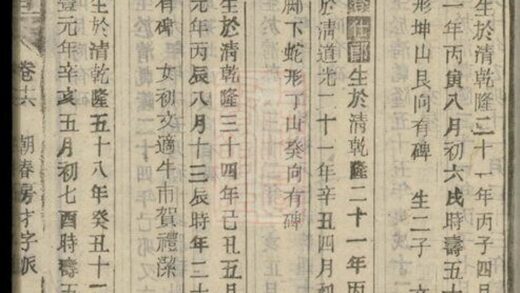 生於清乾隆二十一年丙子四月
一年丙寅八月初六戌時壽五十
形坤山艮向有碑 生二子 文
生於清乾隆二十一年丙
於清道光二十一年辛丑四月初
脚下蛇形丁山癸向有碑
生於清乾隆三十四年己丑五月
元年丙辰八月十三辰時年二十
有碑 女初文適牛市賀禮潔
生於清乾隆五十八年癸丑十一
豐元年辛亥五月初七酉時壽五
卷十六 朝春房才字派